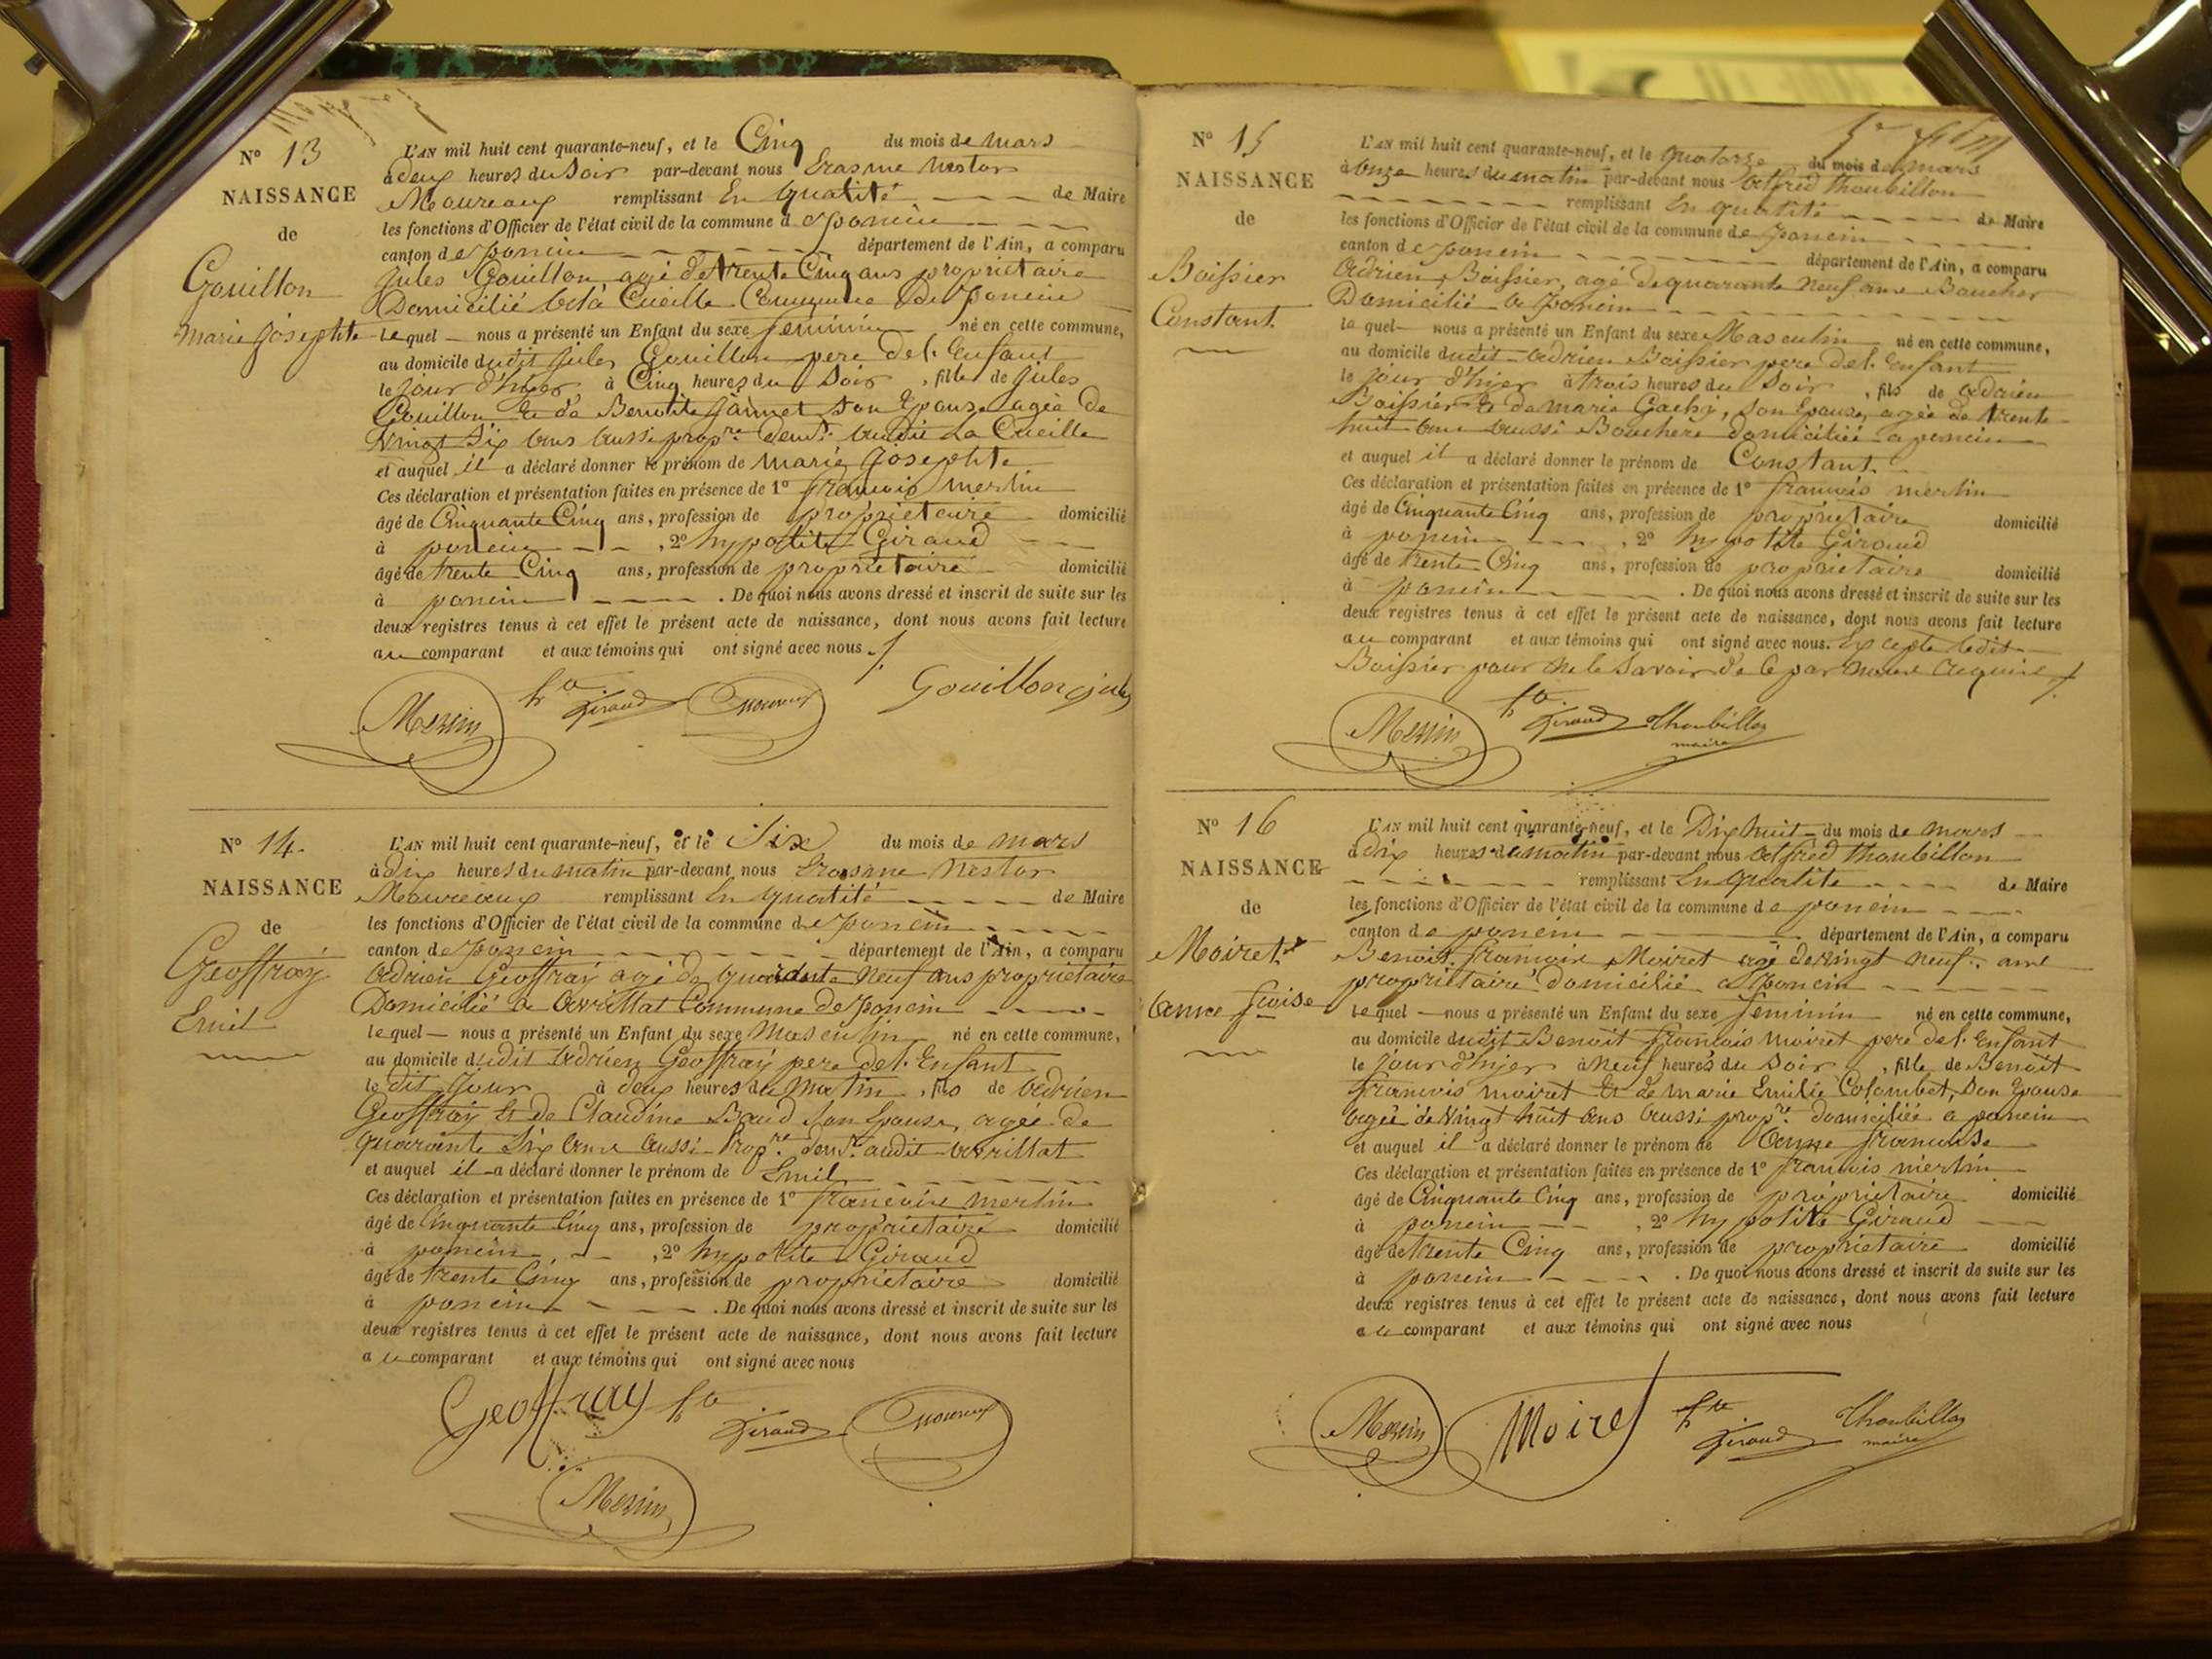 N° 13
NAISSANCE
de
Gouillon
Marie Josephte
L'AN mil huit cent quarante-neuf, et le Cinq du mois de mars
à deux heures du Soir par-devant nous Erasme Nestor
remplissant En qualité de Maire
les fonctions d'Officier de l'état civil de la commune d poncin
canton de poncin département de l'Ain, a comparu
Jules Gouillon agé de trente Cinq ans propriétaire
Domicilié à la Cueille Commune de poncin
lequel nous a présenté un Enfant du sexe féminin né en cette commune,
au domicile dudit Jules Gouillon pere de l'Enfant
le jour d'hier à Cinq heures du Soir, fille de Jules
Gouillon Et de Benoite Jannet son Epouse agée de
Vingt Six ans aussi propre demt audit La Cueille
et auquel il a déclaré donner le prénom de Marie Josephte
Ces déclaration et présentation faites en présence de 1° françois merlin
âgé de Cinquante Cinq ans, profession de propriétaire domicilié
à poncin, 2° hypolite Giraud
âgé de trente Cinq ans, profession de propriétaire domicilié
à poncin. De quoi nous avons dressé et inscrit de suite sur les
deux registres tenus à cet effet le présent acte de naissance, dont nous avons fait lecture
au comparant et aux témoins qui ont signé avec nous ./.
Merlin Giraud Gouillon jules
N° 14.
NAISSANCE
de
Geoffray
Emil
L'AN mil huit cent quarante-neuf, et le Six du mois de mars
à dix heures du matin par-devant nous Erasme Nestor
remplissant En qualité de Maire
les fonctions d'Officier de l'état civil de la commune de poncin
canton de poncin département de l'Ain, a comparu
Adrien Geoffray agé de quarante neuf ans propriétaire
Domicilié a avrillat Commune de poncin
lequel nous a présenté un Enfant du sexe Masculin né en cette commune,
au domicile dudit Adrien Geoffray pere de l'Enfant
le dit jour à deux heures du Matin, fils de Adrien
Geoffray Et de Claudine Baud son Epouse, agée de
quarante Six ans aussi Propre demt audit avrillat
et auquel il a déclaré donner le prénom de Emil
Ces déclaration et présentation faites en présence de 1° francois merlin
âgé de Cinquante Cinq ans, profession de propriétaire domicilié
à poncin, 2° hypolite Giraud
âgé de trente Cinq ans, profession de propriétaire domicilié
à poncin. De quoi nous avons dressé et inscrit de suite sur les
deux registres tenus à cet effet le présent acte de naissance, dont nous avons fait lecture
au comparant et aux témoins qui ont signé avec nous
Geoffray Giraud
Merlin
N° 15
NAISSANCE
de
Boissier
Constant
L'AN mil huit cent quarante-neuf, et le quatorze du mois de mars
à onze heures du matin par-devant nous Alfred Thoubillon
remplissant En qualité de Maire
les fonctions d'Officier de l'état civil de la commune de poncin
canton de poncin département de l'Ain, a comparu
Adrien Boissier, agé de quarante neuf ans Boucher
Domicilié a poncin
lequel nous a présenté un Enfant du sexe Masculin né en cette commune,
au domicile dudit Adrien Boissier pere de l'Enfant
le jour d'hier à trois heures du Soir, fils de Adrien
Boissier Et de marie Gachy, son Epouse, agée de trente
huit ans aussi Bouchere domiciliée a poncin
et auquel il a déclaré donner le prénom de Constant.
Ces déclaration et présentation faites en présence de 1° françois merlin
âgé de Cinquante Cinq ans, profession de propriétaire domicilié
à poncin, 2° hypolite Giraud
âgé de trente Cinq ans, profession de propriétaire domicilié
à poncin. De quoi nous avons dressé et inscrit de suite sur les
deux registres tenus à cet effet le présent acte de naissance, dont nous avons fait lecture
au comparant et aux témoins qui ont signé avec nous. Excepté ledit
Boissier pour ne le Savoir de Ce par nous requis ./.
Merlin Giraud Thoubillon
maire
N° 16
NAISSANCE
de
Moiret
anne fcoise
L'AN mil huit cent quarante-neuf, et le Dix huit du mois de mars
à dix heures du matin par-devant nous Alfred Thoubillon
remplissant En qualité de Maire
les fonctions d'Officier de l'état civil de la commune de poncin
canton de poncin département de l'Ain, a comparu
Benoit françois Moiret agé de vingt neuf ans
propriétaire domicilié a Poncin
lequel nous a présenté un Enfant du sexe feminin né en cette commune,
au domicile dudit Benoit françois Moiret pere de l'Enfant
le jour d'hier à Neuf heures du Soir, fille de Benoit
françois moiret Et de marie Emilie Colombet, son Epouse
agée de Vingt huit ans aussi propre domiciliée a poncin
et auquel il a déclaré donner le prénom de anne francoise
Ces déclaration et présentation faites en présence de 1° francois merlin
âgé de Cinquante Cinq ans, profession de propriétaire domicilié
à poncin, 2° hypolite Giraud
âgé de trente Cinq ans, profession de propriétaire domicilié
à poncin. De quoi nous avons dressé et inscrit de suite sur les
deux registres tenus à cet effet le présent acte de naissance, dont nous avons fait lecture
au comparant et aux témoins qui ont signé avec nous
Merlin Moiret Giraud Thoubillon
maire